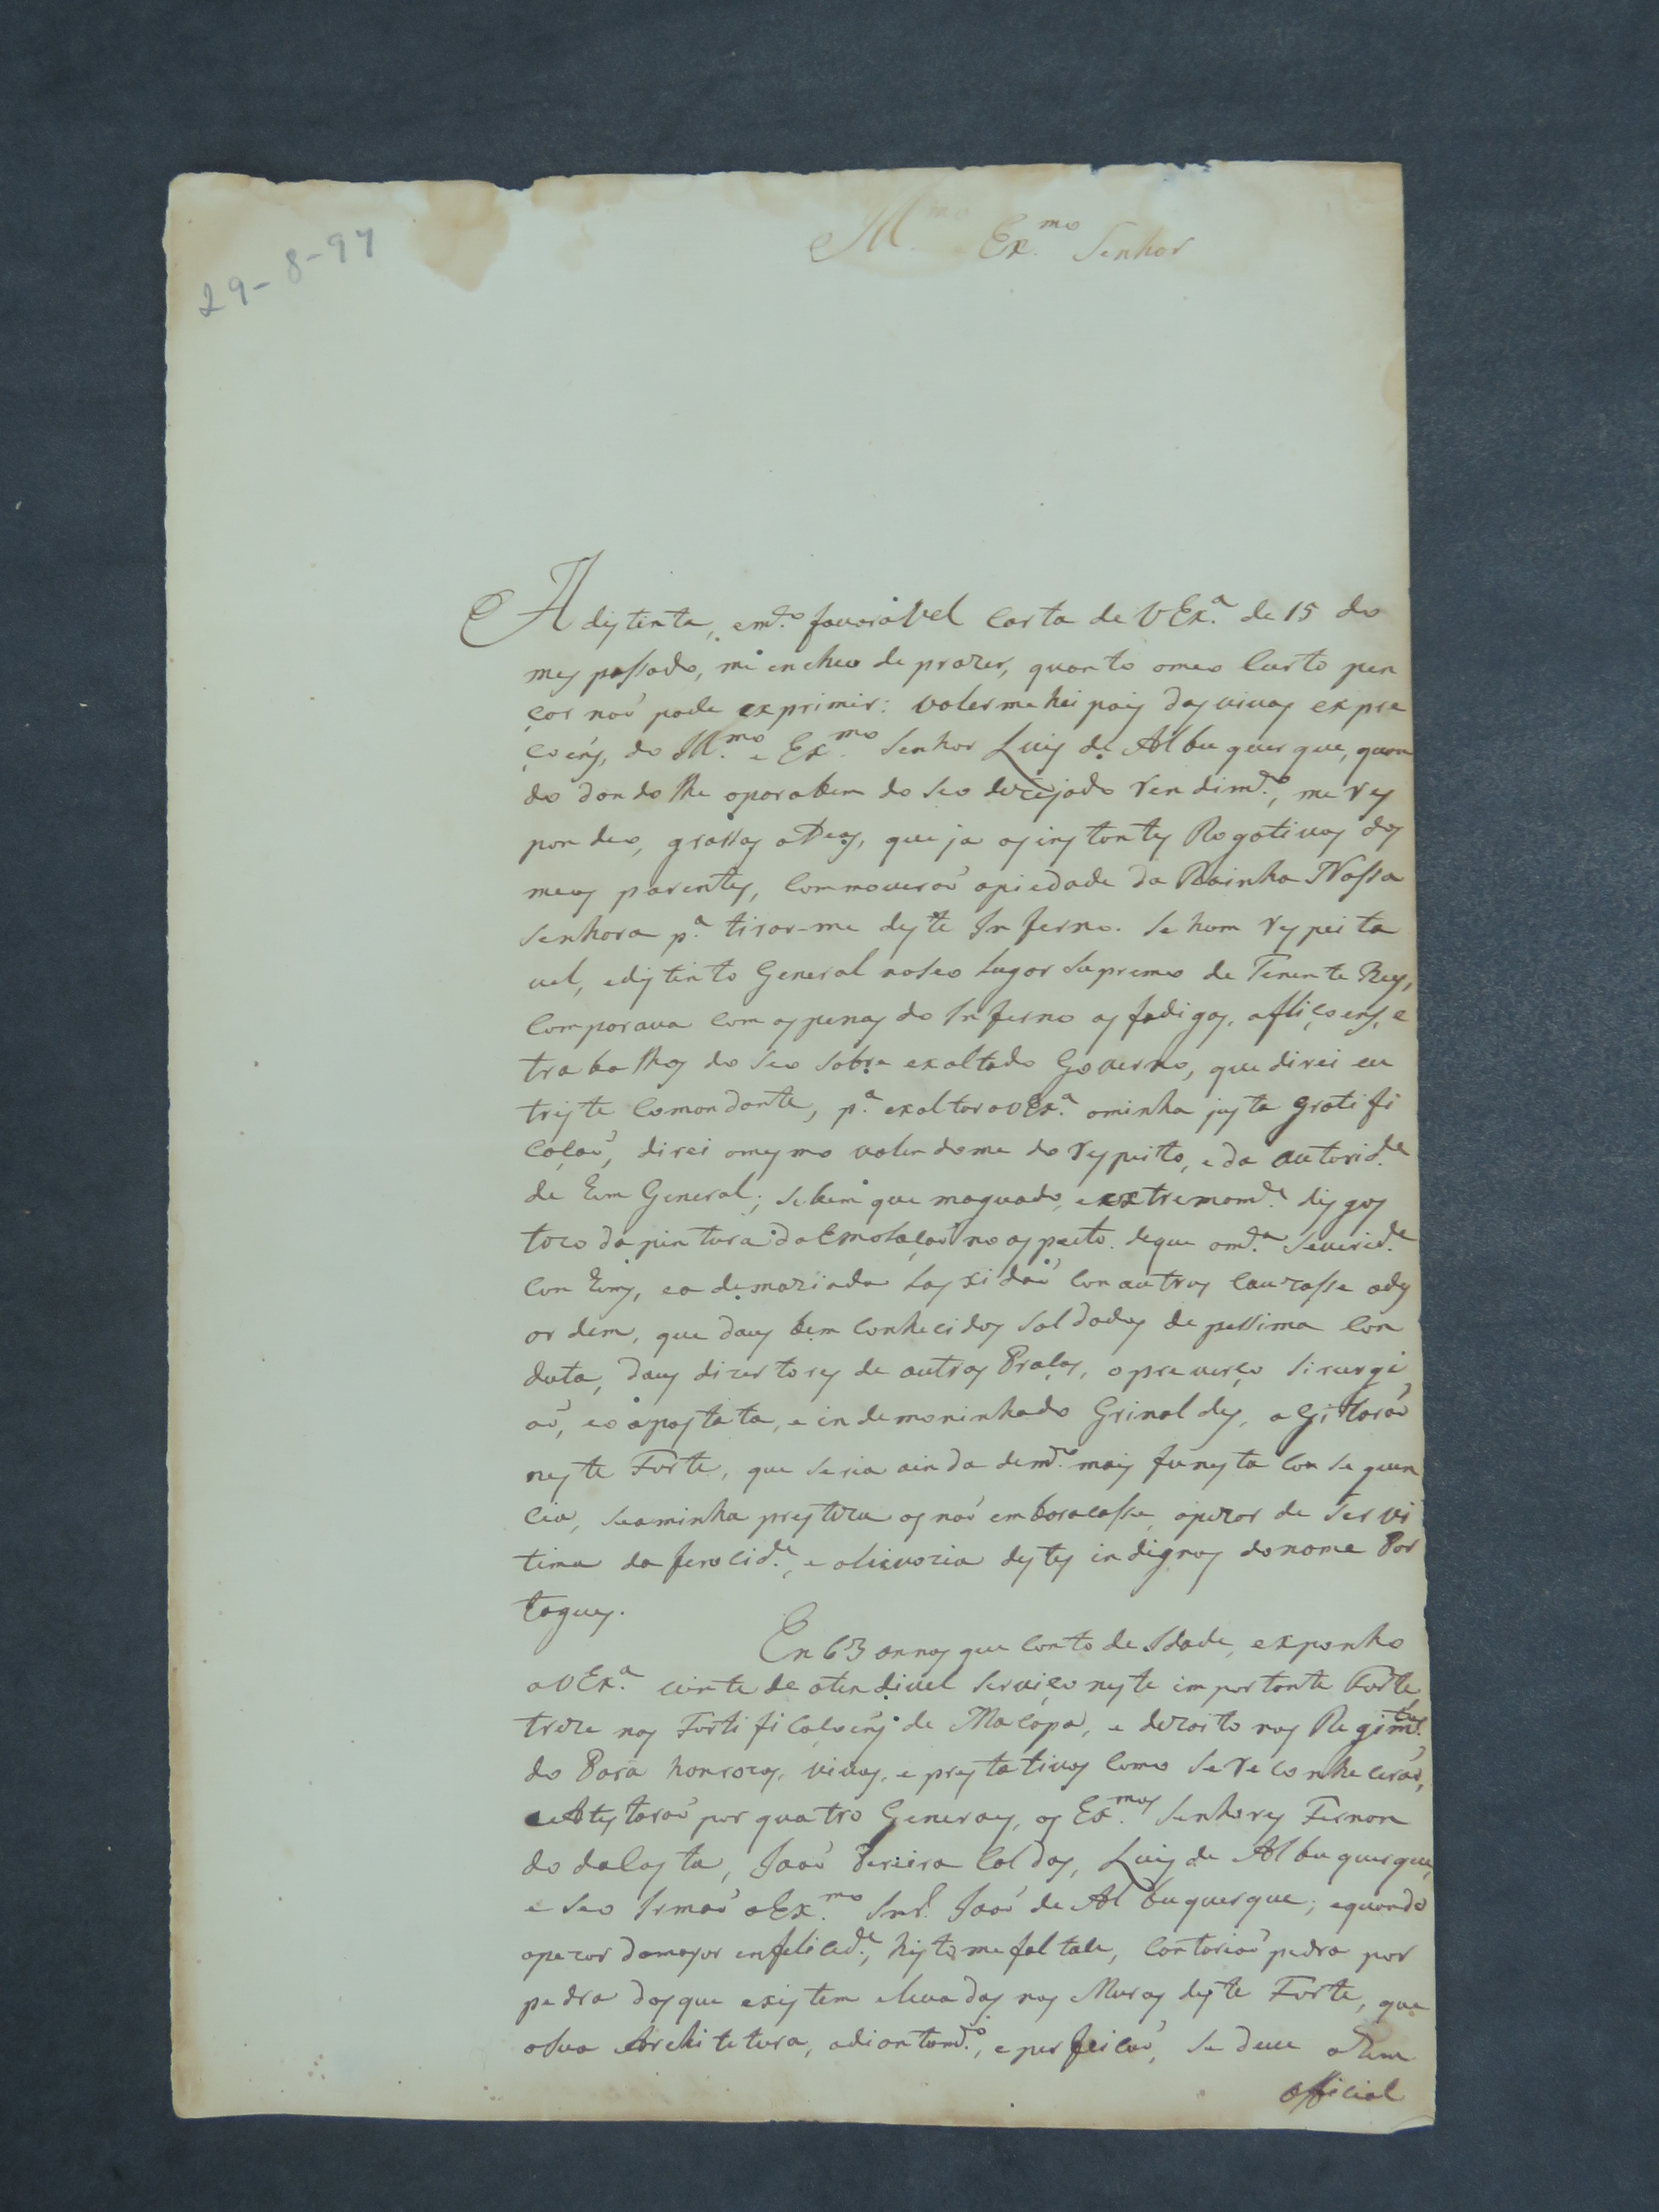 29-8-97
Ill.mo Ex.mo Senhor
A distinta, e m.to favoravel Carta de V Ex.a de 15 do
mes passado, me encheo de prazer, quanto o meo Curto pen
çar naõ pode exprimir: valerme hei pois das vivas expre
çoens, do Ill.mo e Ex.mo Senhor Luis de Albuquerque, quan
do dando lhe o parabem do seo dezejado Rendim.to, me res
pondeo, grassas a Deos, que ja as instantes Rogativas dos
meus parentes, Commoveraõ a piedade da Rainha Nossa
Senhora p.a tirar-me deste Inferno. Se hum respeita
vel, e distinto General no seo Lugar Supremo de Tenente Rey,
Comparava Com as penas do Inferno as fadigas, afliçoens, e
trabalhos do seo sobre exaltado Governo, que direi eu
triste Comandante, p.a exaltar a V Ex.a a minha justa gratifi
caçaõ, direi o mesmo valendome do respeito, e da autorid.e
de hum General; se bem que maguado, e extremam.te disgos
tozo da pintura da Emolaçaõ no aspecto de que a m.ta Severid.e
Con huns, e a demaziada Laxidaõ Con outros Cauzasse a des
ordem, que dous bem Conhecidos Soldados de pessima Con
duta, dous dizertores de outras Praças, o preverço Sirurgi
aõ, e o apostata, e indemoninhado Grinaldes, agitaraõ
neste Forte, que seria ainda de m.to mais funesta Consequen
cia, se a minha presteza os naõ embaraçasse, apezar de ser vi
tima da ferocid.e, e aleivozia destes indignos do nome Por
tugues.
En 63 annos que Conto de Idade, exponho
a V Ex.a vinte de atendivel serviço neste importante Forte
treze nas Fortificaçoens de Macapa, e dezoito nos Regim.tos
do Pará honrozos, vivos, e prestativos Como se reconheceraõ,
e Atestaraõ por quatro Generaes, os Ex.mos Senhores Fernan
do da Costa, Joaõ Pereira Caldas, Luis de Albuquerque,
e seo Irmaõ o Ex.mo Snr. Joaõ de Albuquerque; e quando
apezar da mayor enfelicid.e, histo me faltace, Contariaõ pedra por
pedra das que existem elevadas nos Muros deste Forte, que
a sua Architetura, adiantam.to, e perfeiçaõ, se deve a hum
Official